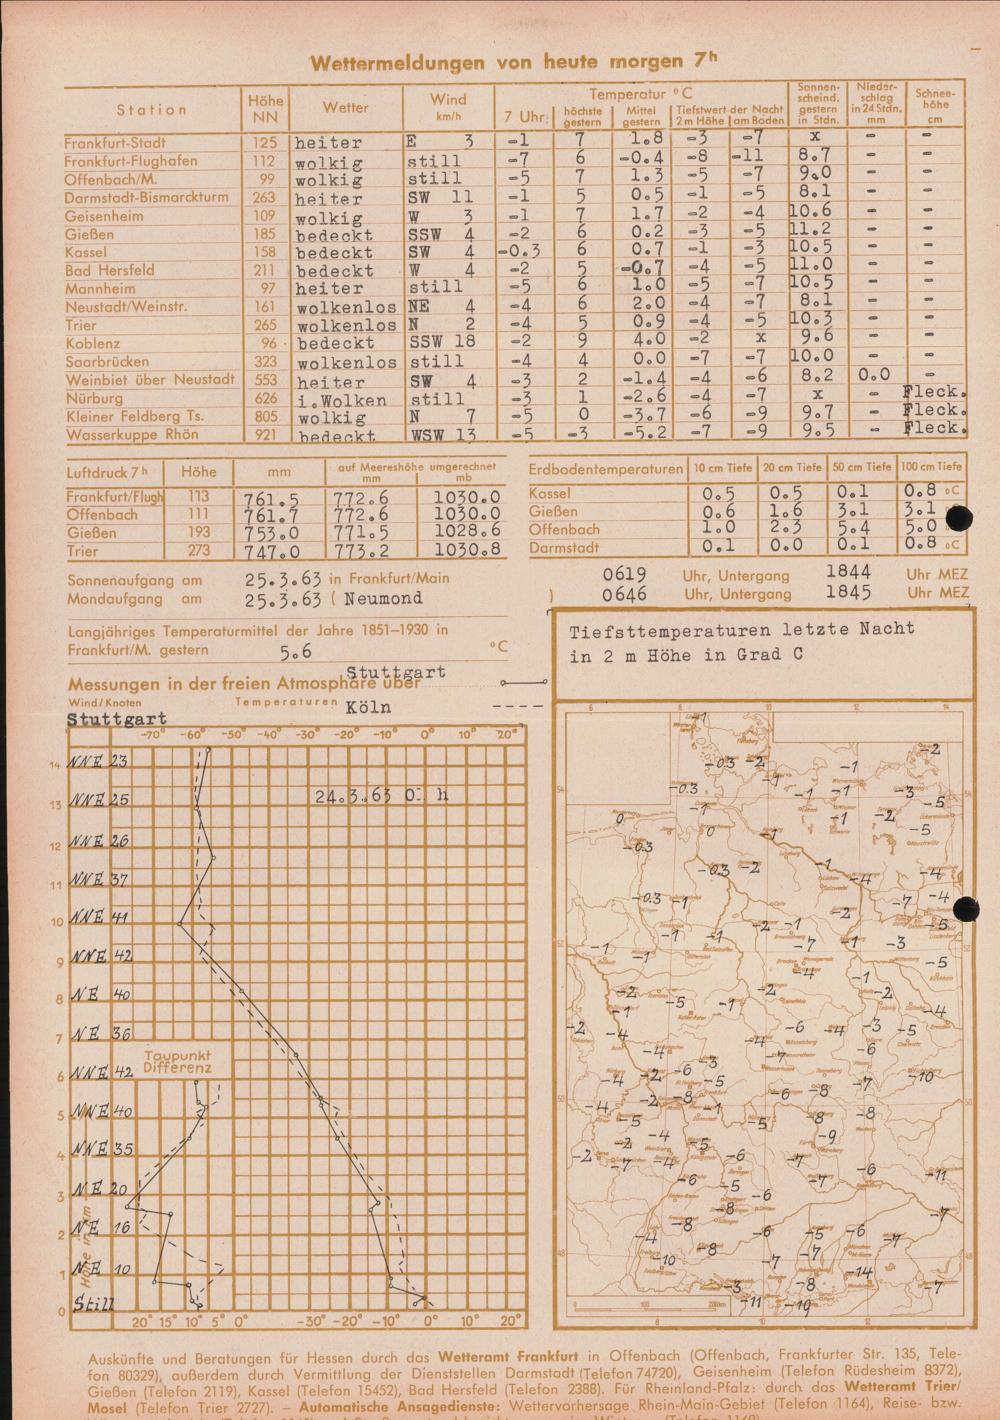 Wettermeldungen von heute morgen 7ʰ
Station Höhe NN Wetter Wind km/h Temperatur °C 7 Uhr höchste gestern Mittel gestern Tiefstwert der Nacht 2 m Höhe am Boden Sonnenscheind. gestern in Stdn. Niederschlag in 24 Stdn. mm Schneehöhe cm
Frankfurt-Stadt 125 heiter E 3 -1 7 1.8 -3 -7 x - -
Frankfurt-Flughafen 112 wolkig still -7 6 -0.4 -8 -11 8.7 - -
Offenbach/M. 99 wolkig still -5 7 1.3 -5 -7 9.0 - -
Darmstadt-Bismarckturm 263 heiter SW 11 -1 5 0.5 -1 -5 8.1 - -
Geisenheim 109 wolkig W 3 -1 7 1.7 -2 -4 10.6 - -
Gießen 185 bedeckt SSW 4 -2 6 0.2 -3 -5 11.2 - -
Kassel 158 bedeckt SW 4 -0.3 6 0.7 -1 -3 10.5 - -
Bad Hersfeld 211 bedeckt W 4 -2 5 -0.7 -4 -5 11.0 - -
Mannheim 97 heiter still -5 6 1.0 -5 -7 10.5 - -
Neustadt/Weinstr. 161 wolkenlos NE 4 -4 6 2.0 -4 -7 8.1 - -
Trier 265 wolkenlos N 2 -4 5 0.9 -4 -5 10.3 - -
Koblenz 96 bedeckt SSW 18 -2 9 4.0 -2 x 9.6 - -
Saarbrücken 323 wolkenlos still -4 4 0.0 -7 -7 10.0 - -
Weinbiet über Neustadt 553 heiter SW 4 -3 2 -1.4 -4 -6 8.2 0.0 -
Nürburg 626 i.Wolken still -3 1 -2.6 -4 -7 x - Fleck.
Kleiner Feldberg Ts. 805 wolkig N 7 -5 0 -3.7 -6 -9 9.7 - Fleck.
Wasserkuppe Rhön 921 bedeckt WSW 13 -5 -3 -5.2 -7 -9 9.5 - Fleck.
Luftdruck 7ʰ Höhe mm auf Meereshöhe umgerechnet mm mb
Frankfurt/Flugh 113 761.5 772.6 1030.0
Offenbach 111 761.7 772.6 1030.0
Gießen 193 753.0 771.5 1028.6
Trier 273 747.0 773.2 1030.8
Erdbodentemperaturen 10 cm Tiefe 20 cm Tiefe 50 cm Tiefe 100 cm Tiefe
Kassel 0.5 0.5 0.1 0.8 °C
Gießen 0.6 1.6 3.1 3.1
Offenbach 1.0 2.3 5.4 5.0
Darmstadt 0.1 0.0 0.1 0.8 °C
Sonnenaufgang am 25.3.63 in Frankfurt/Main 0619 Uhr, Untergang 1844 Uhr MEZ
Mondaufgang am 25.3.63 ( Neumond ) 0646 Uhr, Untergang 1845 Uhr MEZ
Langjähriges Temperaturmittel der Jahre 1851–1930 in
Frankfurt/M. gestern 5.6 °C
Messungen in der freien Atmosphäre über Stuttgart
Wind/Knoten Temperaturen Köln
Stuttgart
-70° -60° -50° -40° -30° -20° -10° 0° 10° 20°
14 NNE 23
13 NNE 25 24.3.63 0 h
12 NNE 26
11 NNE 37
10 NNE 41
9 NNE 42
8 NE 40
7 NE 36
Taupunkt
Differenz
6 NNE 42
5 NNE 40
4 NNE 35
3 NE 20
2 NE 16
1 NE 10
0 Still
Höhe in km
20° 15° 10° 5° 0° -30° -20° -10° 0° 10° 20°
Tiefsttemperaturen letzte Nacht
in 2 m Höhe in Grad C
6 8 10 12 14
-1
-0.3 -2 -1 -2
-0.3 -1 -1 -1 -3 -5
0 -1 0 -1 -1 -2 -5
-0.3 -0.3 -2 -1 -4 -4
-0.3 -1 -2 -7 -4
-1 -1 -1 -2 -1 -7 -1 -3 -5
-1 -4 -5
-2 -5 -1 -2 -1 -2
-2 -1 -4 -6 -4 -3 -5 -4
-4 -3 -4 -7 -6
-4 -2 -6 -5 -7 -10
-4 -2 -8 -1 -6 -8 -8
-5 -5 -8
-2 -2 -4 -5 -9
-7 -4 -6 -7 -6 -11
-6 -5 -6
-8 -8 -7
-4 -6 -5 -6 -7
-10 -8 -7 -7 -14
-3 -8 -7
-11 -19
8 10 12
Auskünfte und Beratungen für Hessen durch das Wetteramt Frankfurt in Offenbach (Offenbach, Frankfurter Str. 135, Tele-
fon 80329), außerdem durch Vermittlung der Dienststellen Darmstadt (Telefon 74720), Geisenheim (Telefon Rüdesheim 8372),
Gießen (Telefon 2119), Kassel (Telefon 15452), Bad Hersfeld (Telefon 2388). Für Rheinland-Pfalz: durch das Wetteramt Trier/
Mosel (Telefon Trier 2727). – Automatische Ansagedienste: Wettervorhersage Rhein-Main-Gebiet (Telefon 1164), Reise- bzw.